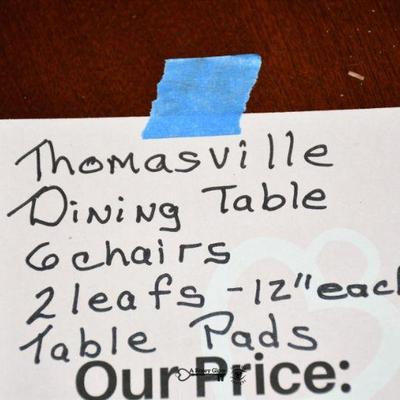 Thomasville
Dining Table
6 chairs
2 leafs - 12" each
Table Pads
Our Price: